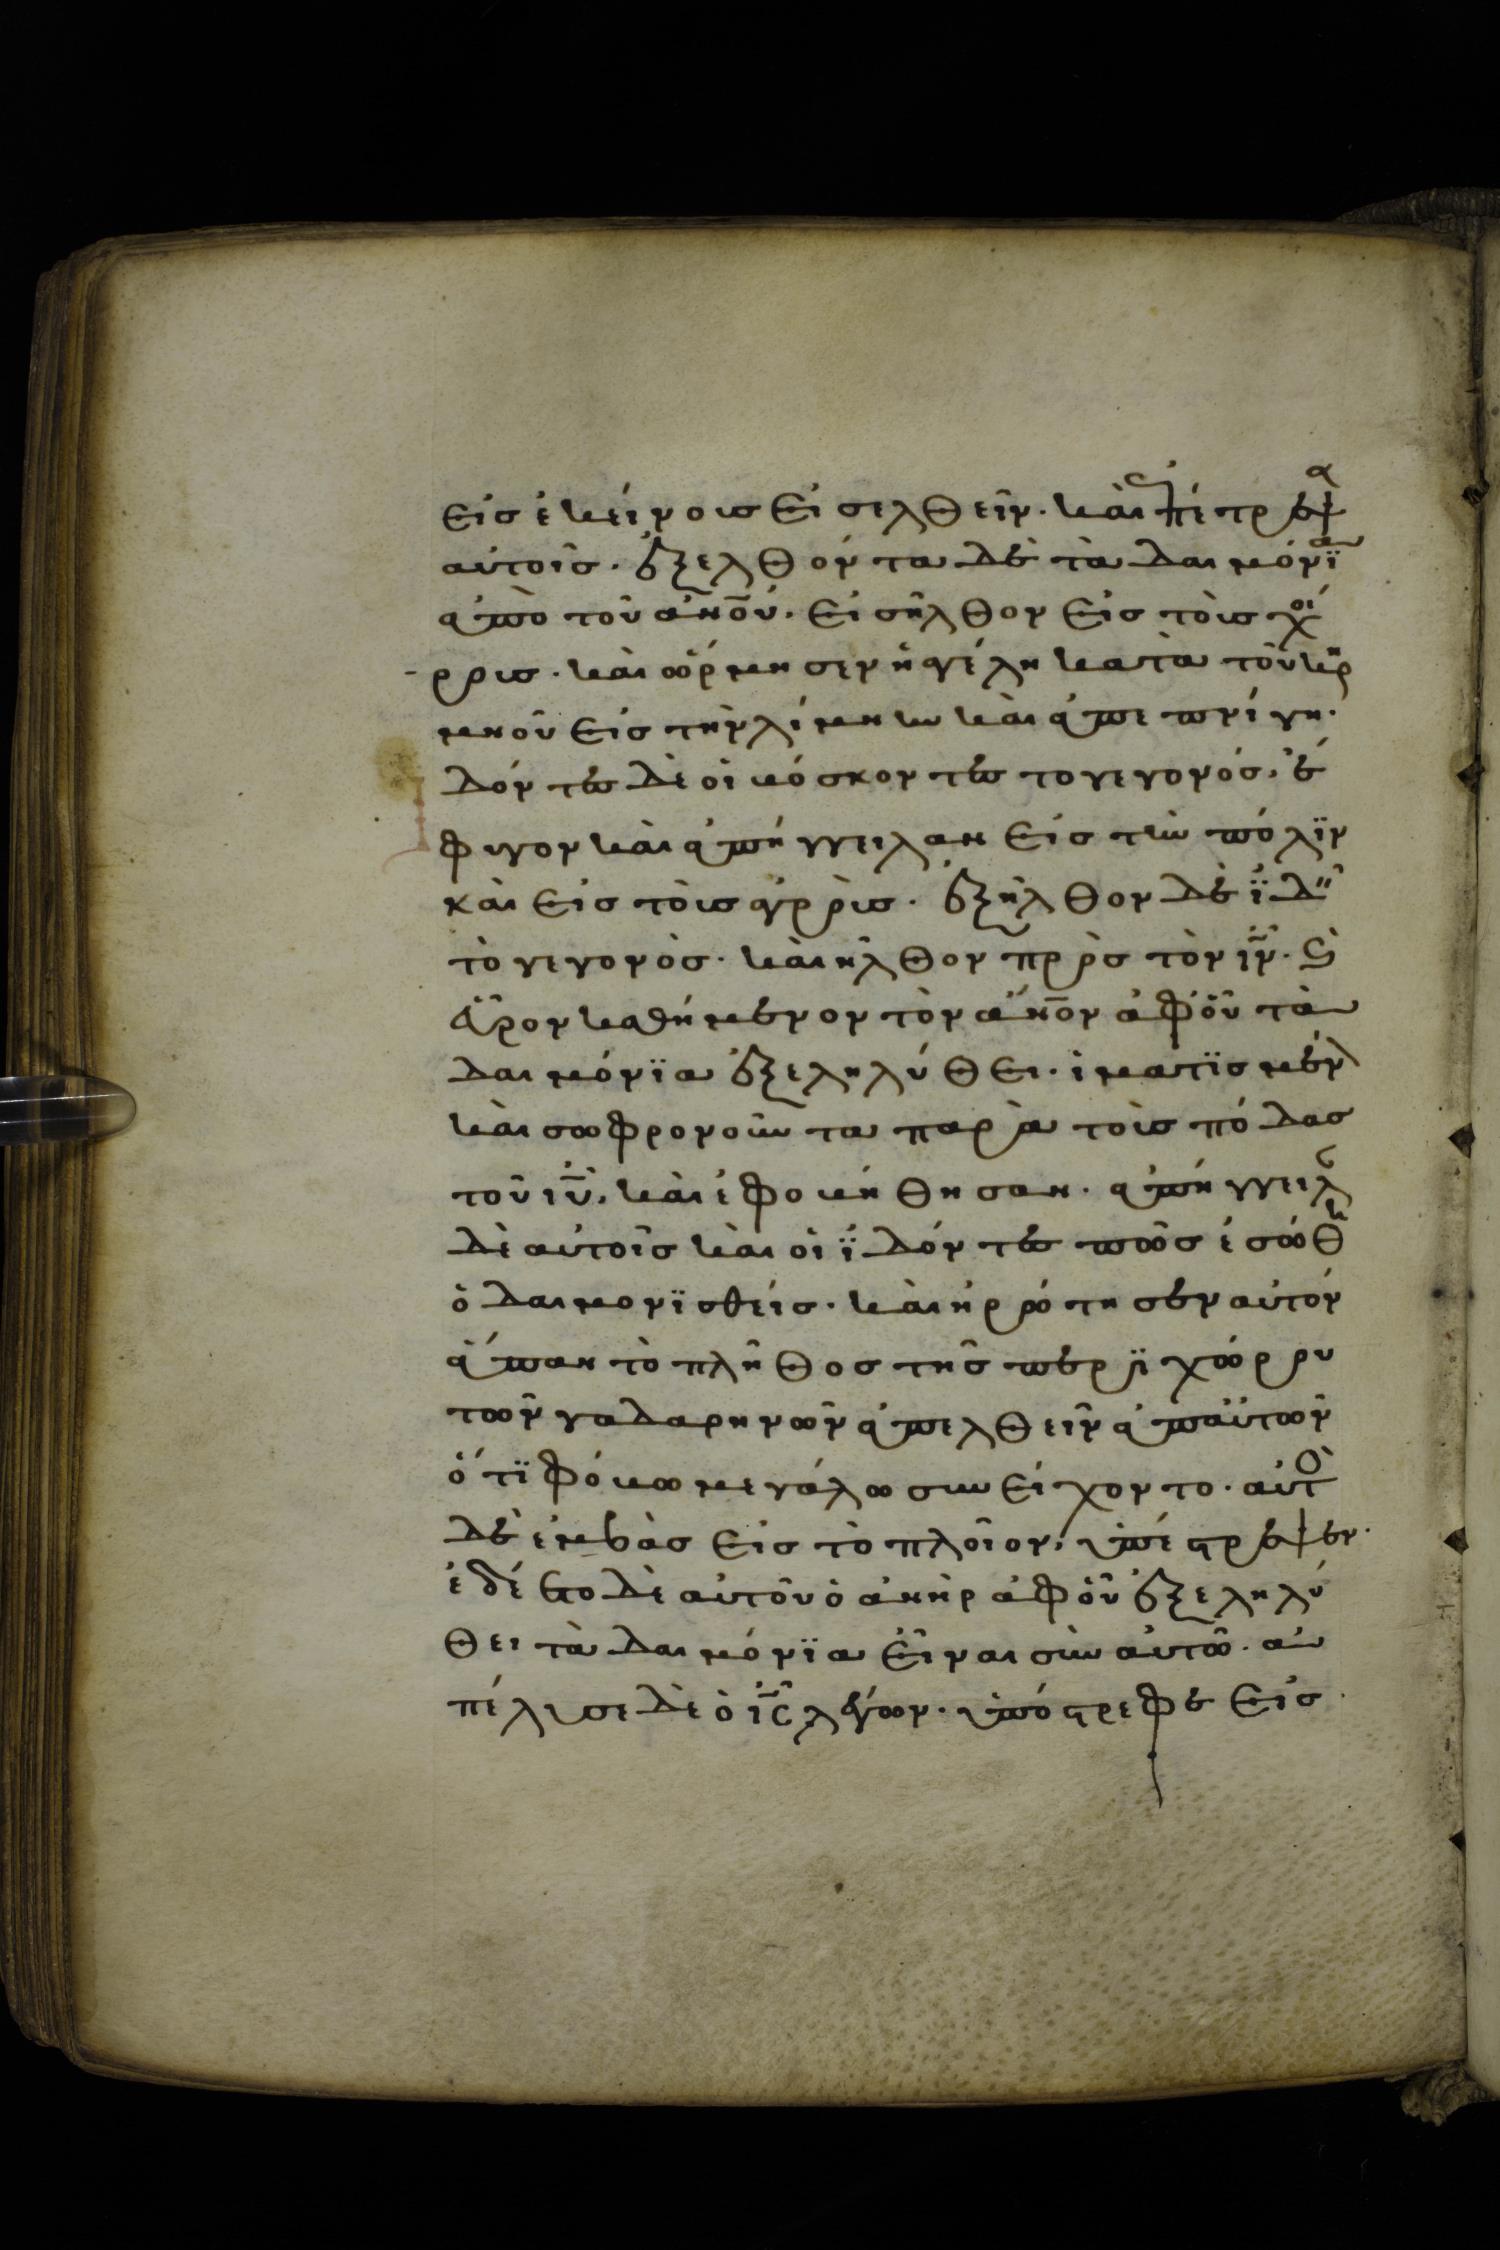 εἰς ἐκείνους εἰσελθεῖν· καὶ ἐπέτρεψ(α)
αὐτοῖς· ἐξελθόντα δὲ τὰ δαιμόνϊα
ἀπὸ τοῦ ἀν̅ο̅υ̅· εἰσῆλθον εἰς τοὺς χοί
ρους· καὶ ὥρμησεν ἡ ἀγέλη κατὰ τοῦ κρη
μνοῦ εἰς τὴν λίμνην καὶ ἀπεπνίγη·
δόντες δὲ οἱ βόσκοντες το γεγονός· ἔ
φυγον καὶ ἀπήγγειλαν εἰς τὴν πόλϊν
καὶ εἰς τοὺς ἀγροὺς· ἐξῆλθον δὲ ϊδεῖν
τὸ γεγονὸς· καὶ ἦλθον πρὸς τὸν ι̅ν̅· ϗ
εὗρον καθήμενον τὸν α̅ν̅ο̅ν̅ ἀφοῦ τὰ
δαιμόνϊα ἐξεληλύθει· ἱματϊσμέν(ον)
καὶ σωφρονοῦντα παρὰ τοὺς πόδας
τοῦ ι̅υ̅· καὶ ἐφοβήθησαν· ἀπήγγειλ(αν)
δὲ αὐτοῖς καὶ οἱ ϊδόντες πῶς ἐσώθη
ὁ δαιμονϊσθείς· καὶ ἠρώτησεν αὐτόν
ἅπαν τὸ πλῆθος τῆς περϊχώρου
τῶν γαδαρηνῶν ἀπελθεῖν ἀπ αὐτῶν
ὅτϊ φόβω μεγάλω συνείχοντο· αὐτὸ
δὲ ἐμβὰς εἰς τὸ πλοῖον, ὑπέστρεψεν·
ἐδέετο δὲ αὐτοῦ ὁ ἀνὴρ ἀφοῦ ἐξεληλύ
θει τὰ δαιμόνϊα εἶναι σὺν αὐτῶ· ἀ
πέλυσε δὲ ὁ ι̅ς̅ λέγων· ὑπόστρεφε εἰς